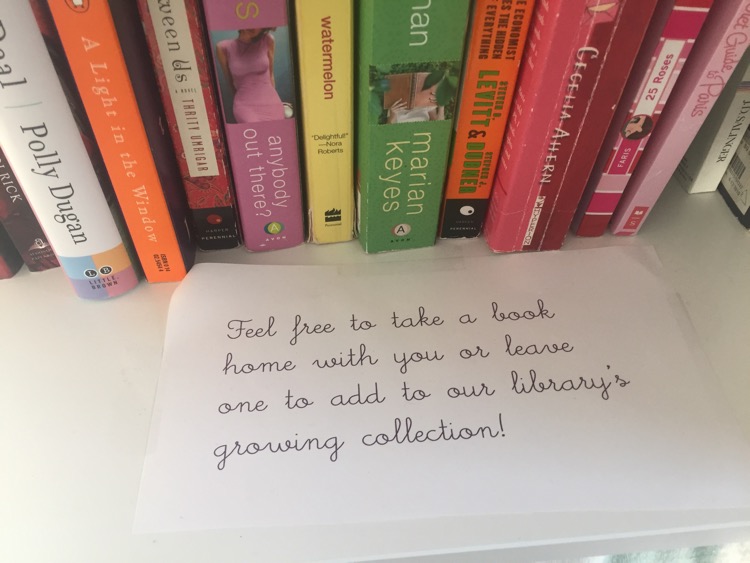 LRICK
Deal
Polly Dugan
LITTLE,
BROWN
A Light in the Window
ween Us
A NOVEL
THRITY UMRIGAR
HARPER
PERENNIAL
s
anybody
out there?
A
AVON
watermelon
"Delightful!"
—Nora
Roberts
man
marian
keyes
A
AVON
E ECONOMIST
ES THE HIDDEN
EVERYTHING
STEVEN D.
LEVITT &
STEPHEN J.
DUBNER
PERENNIAL
CECELIA AHERN
25 Roses
FARIS
Guide to Paris
J.D. SALINGER
Feel free to take a book
home with you or leave
one to add to our library's
growing collection!